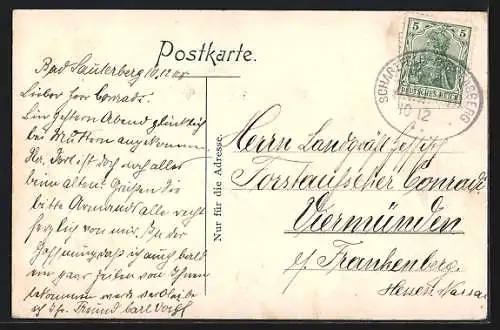 Postkarte.
Nur für die Adresse.
5 5
DEUTSCHES REICH
SCHARZFELD
10 12
Bad Lauterberg 10.12.08
Lieber Herr Conrad.
Bin gestern Abend glücklich
bei Muttern angekommen
Hier, dort ist doch noch alles
beim alten. Grüßen Sie
bitte Armand alle recht
herzlich von mir. In der
Hoffnung daß ich auch bald
ein paar Zeilen von Ihnen
bekommen werde verbleibe
ich Ihr Freund Carl Vogt
Herrn Landgräfl. Hessisch
Forstaufseher Conrad
Viermünden
b/ Frankenberg.
Hessen-Nassau